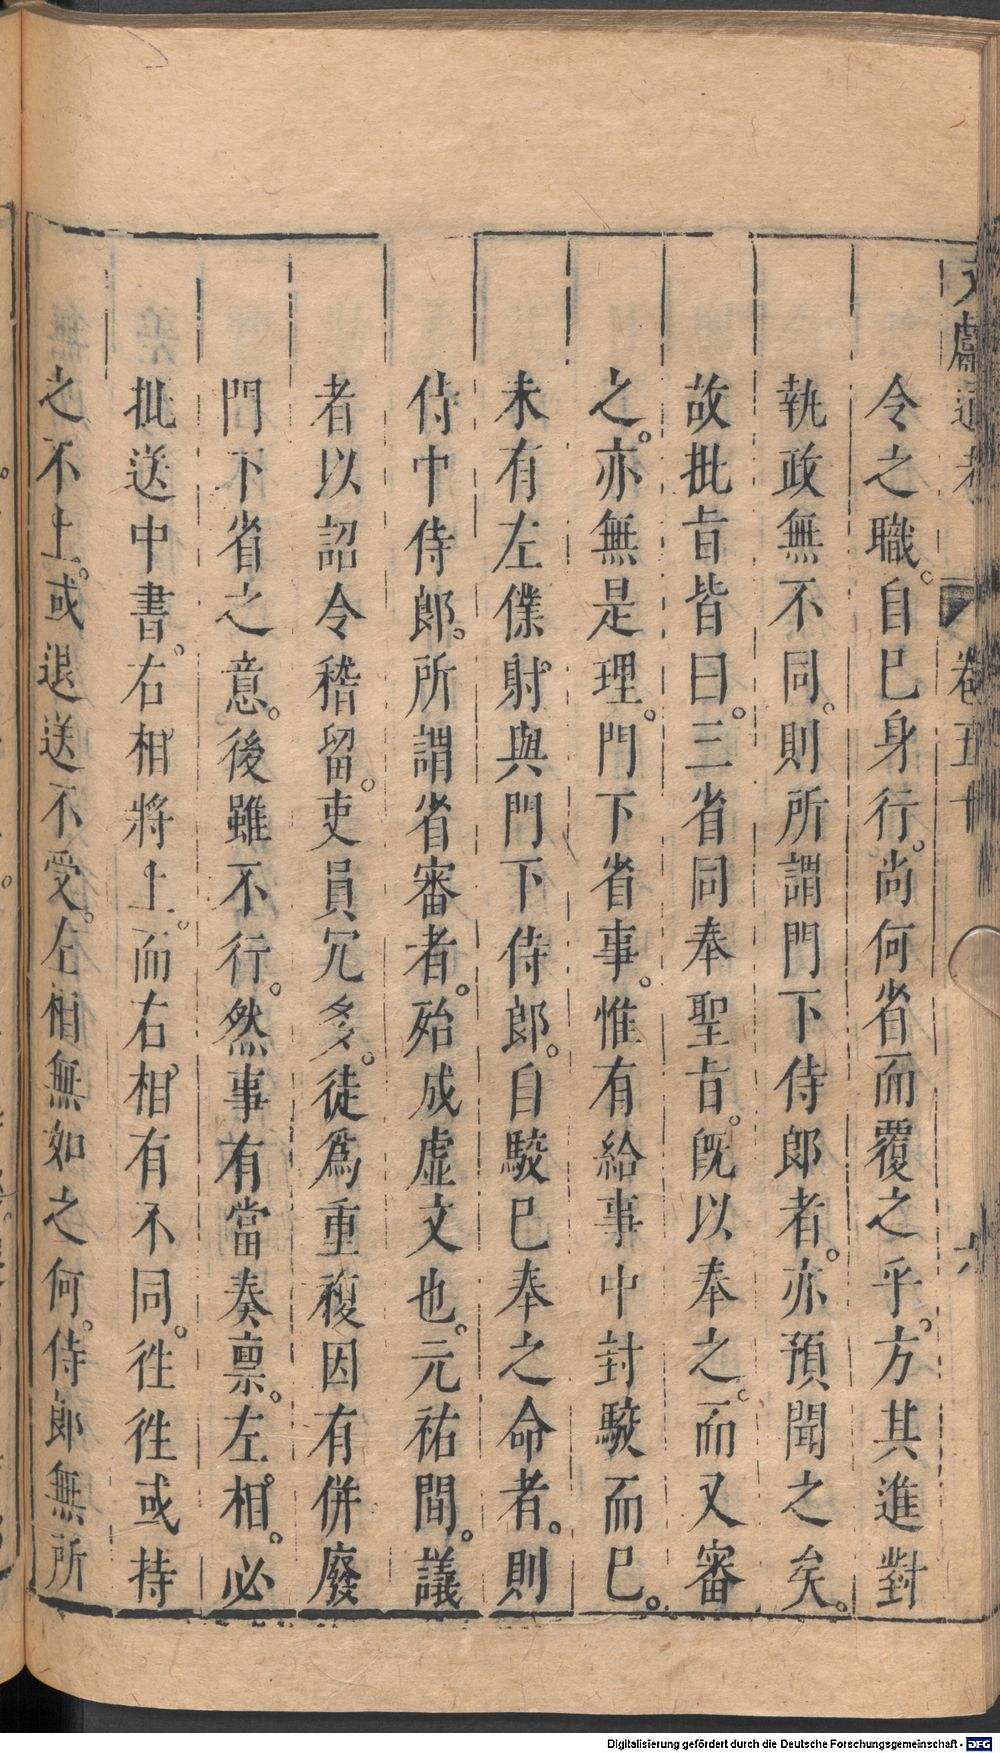 文獻通考 卷五十 六
令之職。自已身行。尚何省而覆之乎。方其進對
執政無不同。則所謂門下侍郎者。亦預聞之矣。
故批旨皆曰。三省同奉聖旨。旣以奉之。而又審
之。亦無是理。門下省事。惟有給事中封駮而已。
未有左僕射。與門下侍郎。自駮已奉之命者。則
侍中侍郎。所謂省審者。殆成虛文也。元祐間。議
者以詔令稽留。吏員冗多。徒爲重複因有併廢
門下省之意。後雖不行。然事有當奏稟。左相。必
批送中書。右相將上。而右相有不同。徃徃或持
之不上。或退送不受。左相無如之何。侍郎無所
Digitalisierung gefördert durch die Deutsche Forschungsgemeinschaft - DFG